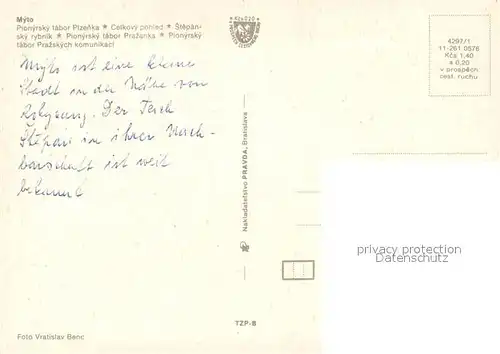 Mýto
Pionýrský tábor Plzeňka ★ Celkový pohled ★ Štěpán-
ský rybník ★ Pionýrský tábor Pražanka ★ Pionýrský
tábor Pražských komunikací
Mýto ist eine kleine
Stadt in der Nähe von
Rokycany. Der Teich
Štěpán in ihrer Nach-
barschaft ist weit
bekannt
4297/1
11-261 0576
Kčs 1,40
a 0,20
v prospěch
cest. ruchu
Nakladatelstvo PRAVDA, Bratislava
privacy protection
Ansichtskarten-Center
TZP-B
Foto Vratislav Benc